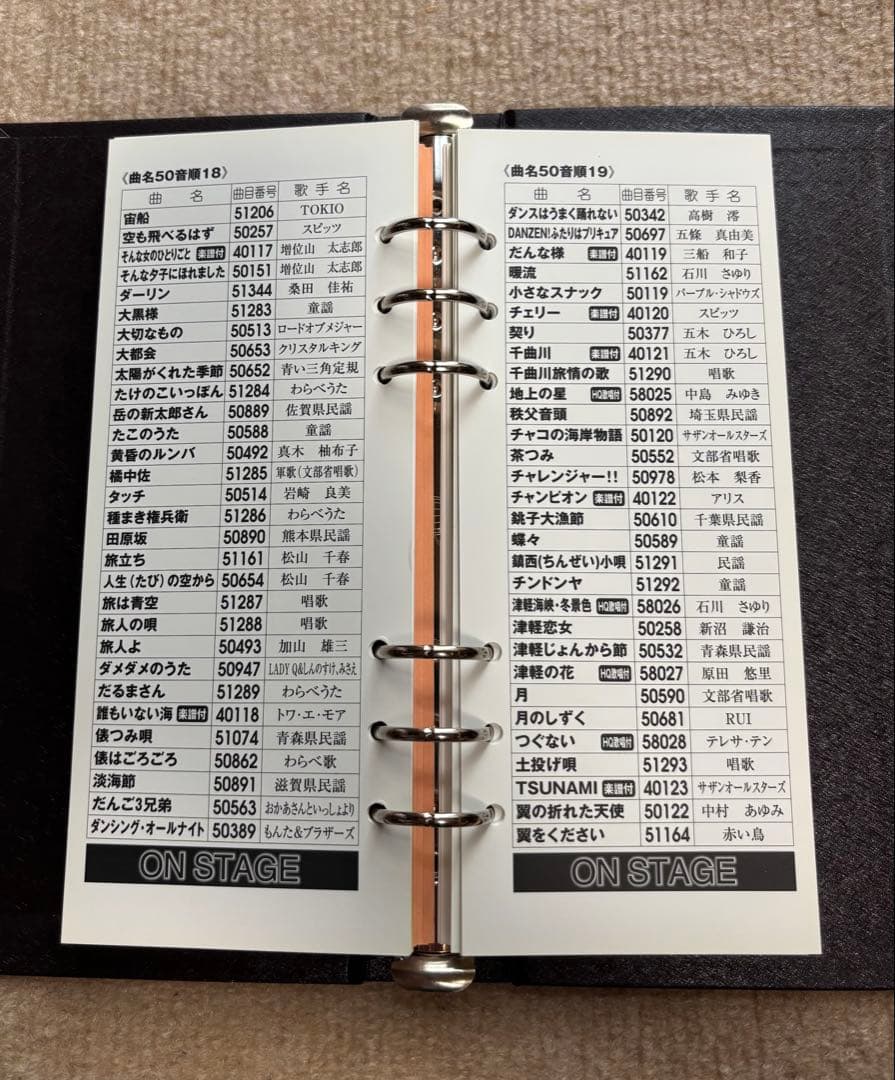 《曲名50音順18》
曲 名 曲目番号 歌手名
宙船 51206 TOKIO
空も飛べるはず 50257 スピッツ
そんな女のひとりごと 楽譜付 40117 増位山 太志郎
そんな夕子にほれました 50151 増位山 太志郎
ダーリン 51344 桑田 佳祐
大黒様 51283 童謡
大切なもの 50513 ロードオブメジャー
大都会 50653 クリスタルキング
太陽がくれた季節 50652 青い三角定規
たけのこいっぽん 51284 わらべうた
岳の新太郎さん 50889 佐賀県民謡
たこのうた 50588 童謡
黄昏のルンバ 50492 真木 柚布子
橘中佐 51285 軍歌(文部省唱歌)
タッチ 50514 岩崎 良美
種まき権兵衛 51286 わらべうた
田原坂 50890 熊本県民謡
旅立ち 51161 松山 千春
人生(たび)の空から 50654 松山 千春
旅は青空 51287 唱歌
旅人の唄 51288 唱歌
旅人よ 50493 加山 雄三
ダメダメのうた 50947 LADY Q&しんのすけ,みさえ
だるまさん 51289 わらべうた
誰もいない海 楽譜付 40118 トワ・エ・モア
俵つみ唄 51074 青森県民謡
俵はごろごろ 50862 わらべ歌
淡海節 50891 滋賀県民謡
だんご3兄弟 50563 おかあさんといっしょより
ダンシング・オールナイト 50389 もんた&ブラザーズ
ON STAGE
《曲名50音順19》
曲 名 曲目番号 歌手名
ダンスはうまく踊れない 50342 高樹 澪
DANZEN!ふたりはプリキュア 50697 五條 真由美
だんな様 楽譜付 40119 三船 和子
暖流 51162 石川 さゆり
小さなスナック 50119 パープル・シャドウズ
チェリー 楽譜付 40120 スピッツ
契り 50377 五木 ひろし
千曲川 楽譜付 40121 五木 ひろし
千曲川旅情の歌 51290 唱歌
地上の星 HQ歌唱付 58025 中島 みゆき
秩父音頭 50892 埼玉県民謡
チャコの海岸物語 50120 サザンオールスターズ
茶つみ 50552 文部省唱歌
チャレンジャー!! 50978 松本 梨香
チャンピオン 楽譜付 40122 アリス
銚子大漁節 50610 千葉県民謡
蝶々 50589 童謡
鎮西(ちんぜい)小唄 51291 民謡
チンドンヤ 51292 童謡
津軽海峡・冬景色 HQ歌唱付 58026 石川 さゆり
津軽恋女 50258 新沼 謙治
津軽じょんから節 50532 青森県民謡
津軽の花 HQ歌唱付 58027 原田 悠里
月 50590 文部省唱歌
月のしずく 50681 RUI
つぐない HQ歌唱付 58028 テレサ・テン
土投げ唄 51293 唱歌
TSUNAMI 楽譜付 40123 サザンオールスターズ
翼の折れた天使 50122 中村 あゆみ
翼をください 51164 赤い鳥
ON STAGE